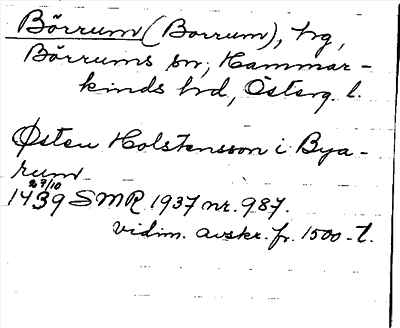 Börrum (Borrum), hg,
Börrums sn, Hammar-
kinds hd, Österg. l.
Østen Holstensson i Bya-
rum
27/10
1439 SMR 1937 nr. 987.
vidim. avskr. fr. 1500-t.